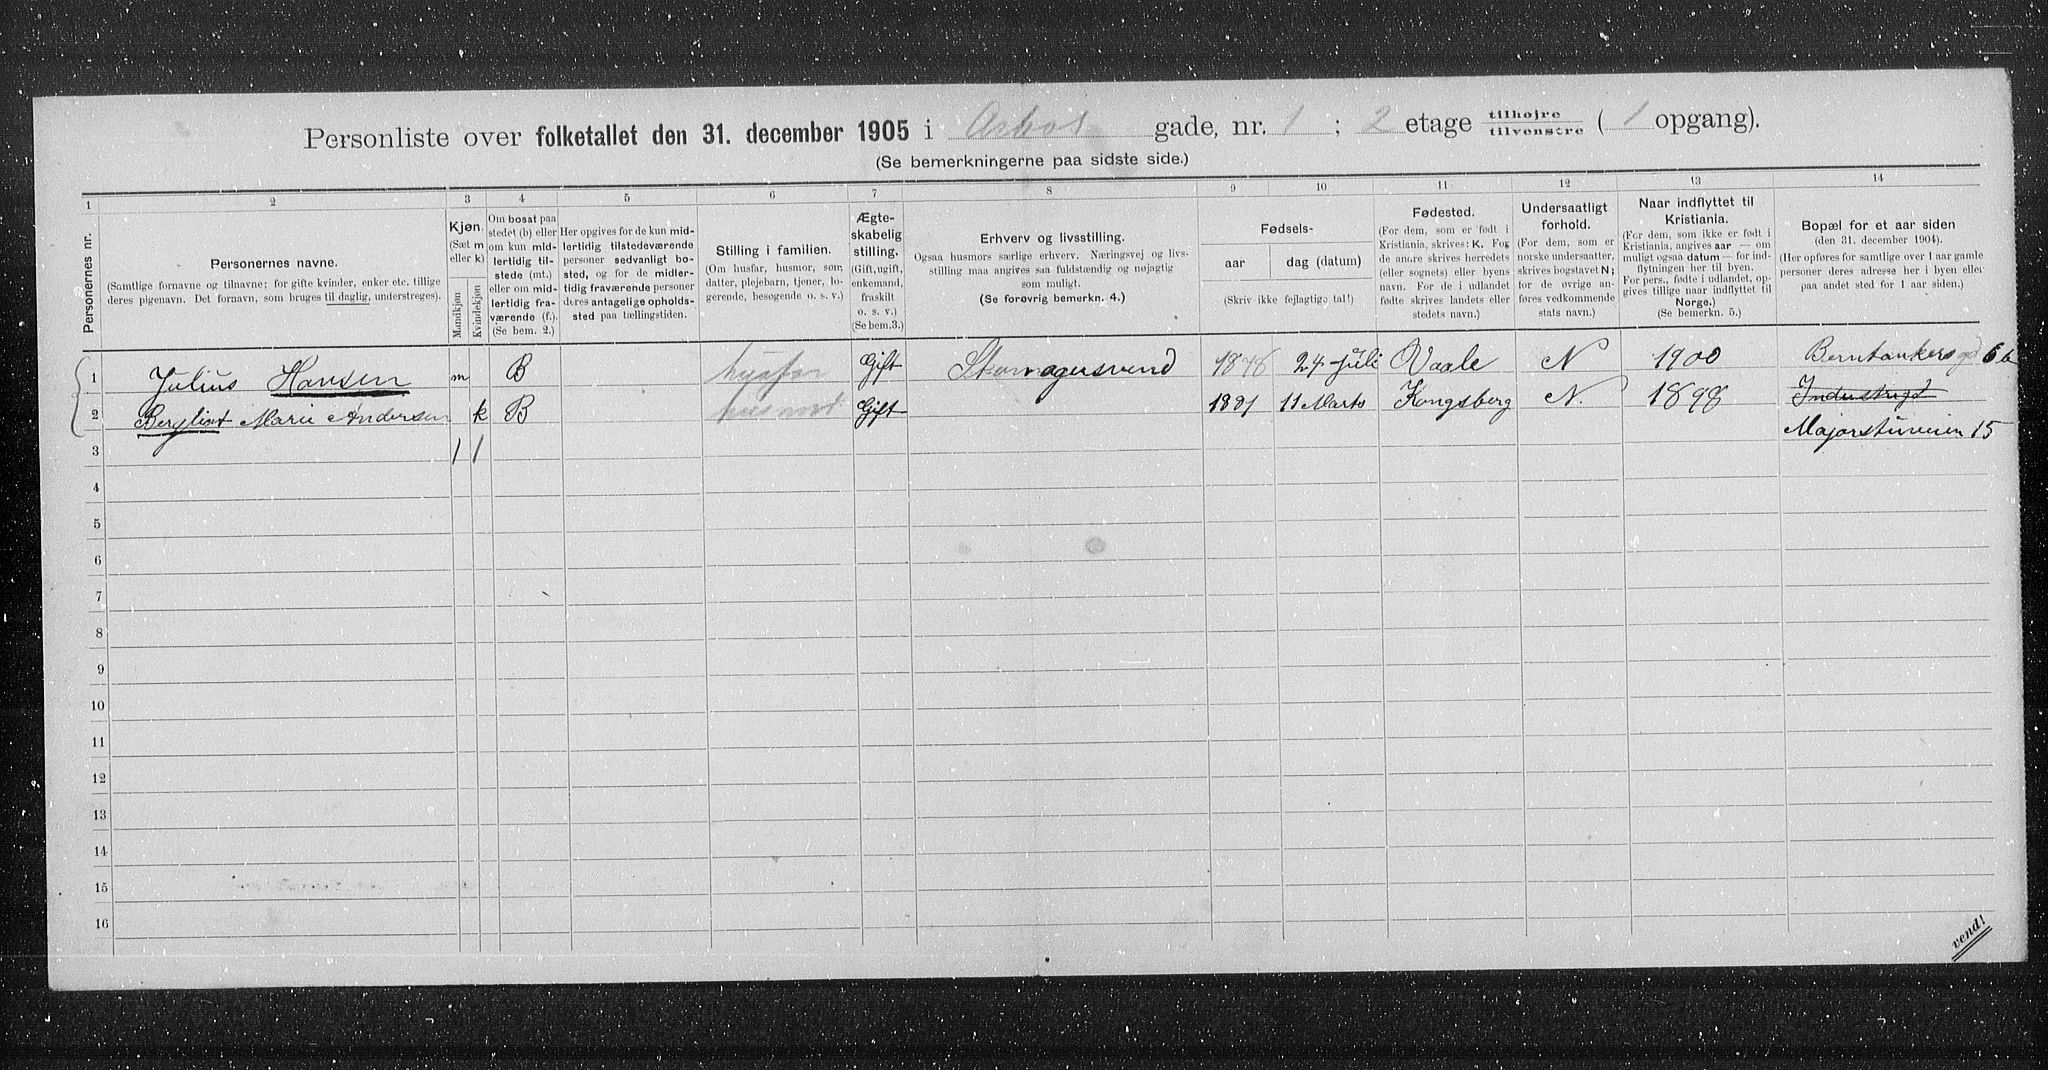 Personliste over folketallet den 31. december 1905 i Asbos gade, nr. 1 ; 2 etage tilhøjre tilvenstre ( 1 opgang).
(Se bemerkningerne paa sidste side.)
1 2 3 4 5 6 7 8 9 10 11 12 13 14
Personernes nr.
Personernes navne.
(Samtlige fornavne og tilnavne; for gifte kvinder, enker etc. tillige deres pigenavn. Det fornavn, som bruges til daglig, understreges).
Kjøn.
(Sæt m eller k)
Mandkjøn
Kvindekjøn
Om bosat paa stedet (b) eller om kun midlertidig tilstede (mt.) eller om midlertidig fraværende (f.). (Se bem. 2.)
Her opgives for de kun midlertidig tilstedeværende personer sedvanligt bosted, og for de midlertidig fraværende personer deres antagelige opholdssted paa tællingstiden.
Stilling i familien.
(Om husfar, husmor, søn, datter, plejebarn, tjener, logerende, besøgende o. s. v.)
Ægteskabelig stilling.
(Gift, ugift, enkemand, fraskilt o. s. v.) (Se bem.3.)
Erhverv og livsstilling.
Ogsaa husmors særlige erhverv. Næringsvej og livsstilling maa angives saa fuldstændig og nøjagtig som muligt.
(Se forøvrig bemerkn. 4.)
Fødsels-
aar
dag (datum)
(Skriv ikke fejlagtige tal!)
Fødested.
(For dem, som er født i Kristiania, skrives: K. For de andre skrives herredets (eller sognets) eller byens navn. For de i udlandet fødte skrives landets eller stedets navn.)
Undersaatligt forhold.
(For dem, som er norske undersaatter, skrives bogstavet N; for de øvrige anføres vedkommende stats navn.)
Naar indflyttet til Kristiania.
(For dem, som ikke er født i Kristiania, angives aar — om muligt ogsaa datum — for indflytningen her til byen. For pers., fødte i udlandet, opgives tillige naar indflyttet til Norge.)
(Se bemerkn. 5.)
Bopæl for et aar siden
(den 31. december 1904).
(Her opføres for samtlige over 1 aar gamle personer deres adresse her i byen eller paa andet sted for 1 aar siden.)
1 Julius Hansen m B husfar Gift Skomagersvend 1878 24 juli Vaale N 1900 Berntankersgd 6 b
2 Berglint Marie Andersen k B husmod. Gift 1881 11 Marts Kongsberg N. 1898 Industrigt
Majorstuveien 15
3 1 1
4
5
6
7
8
9
10
11
12
13
14
15
16
vend!